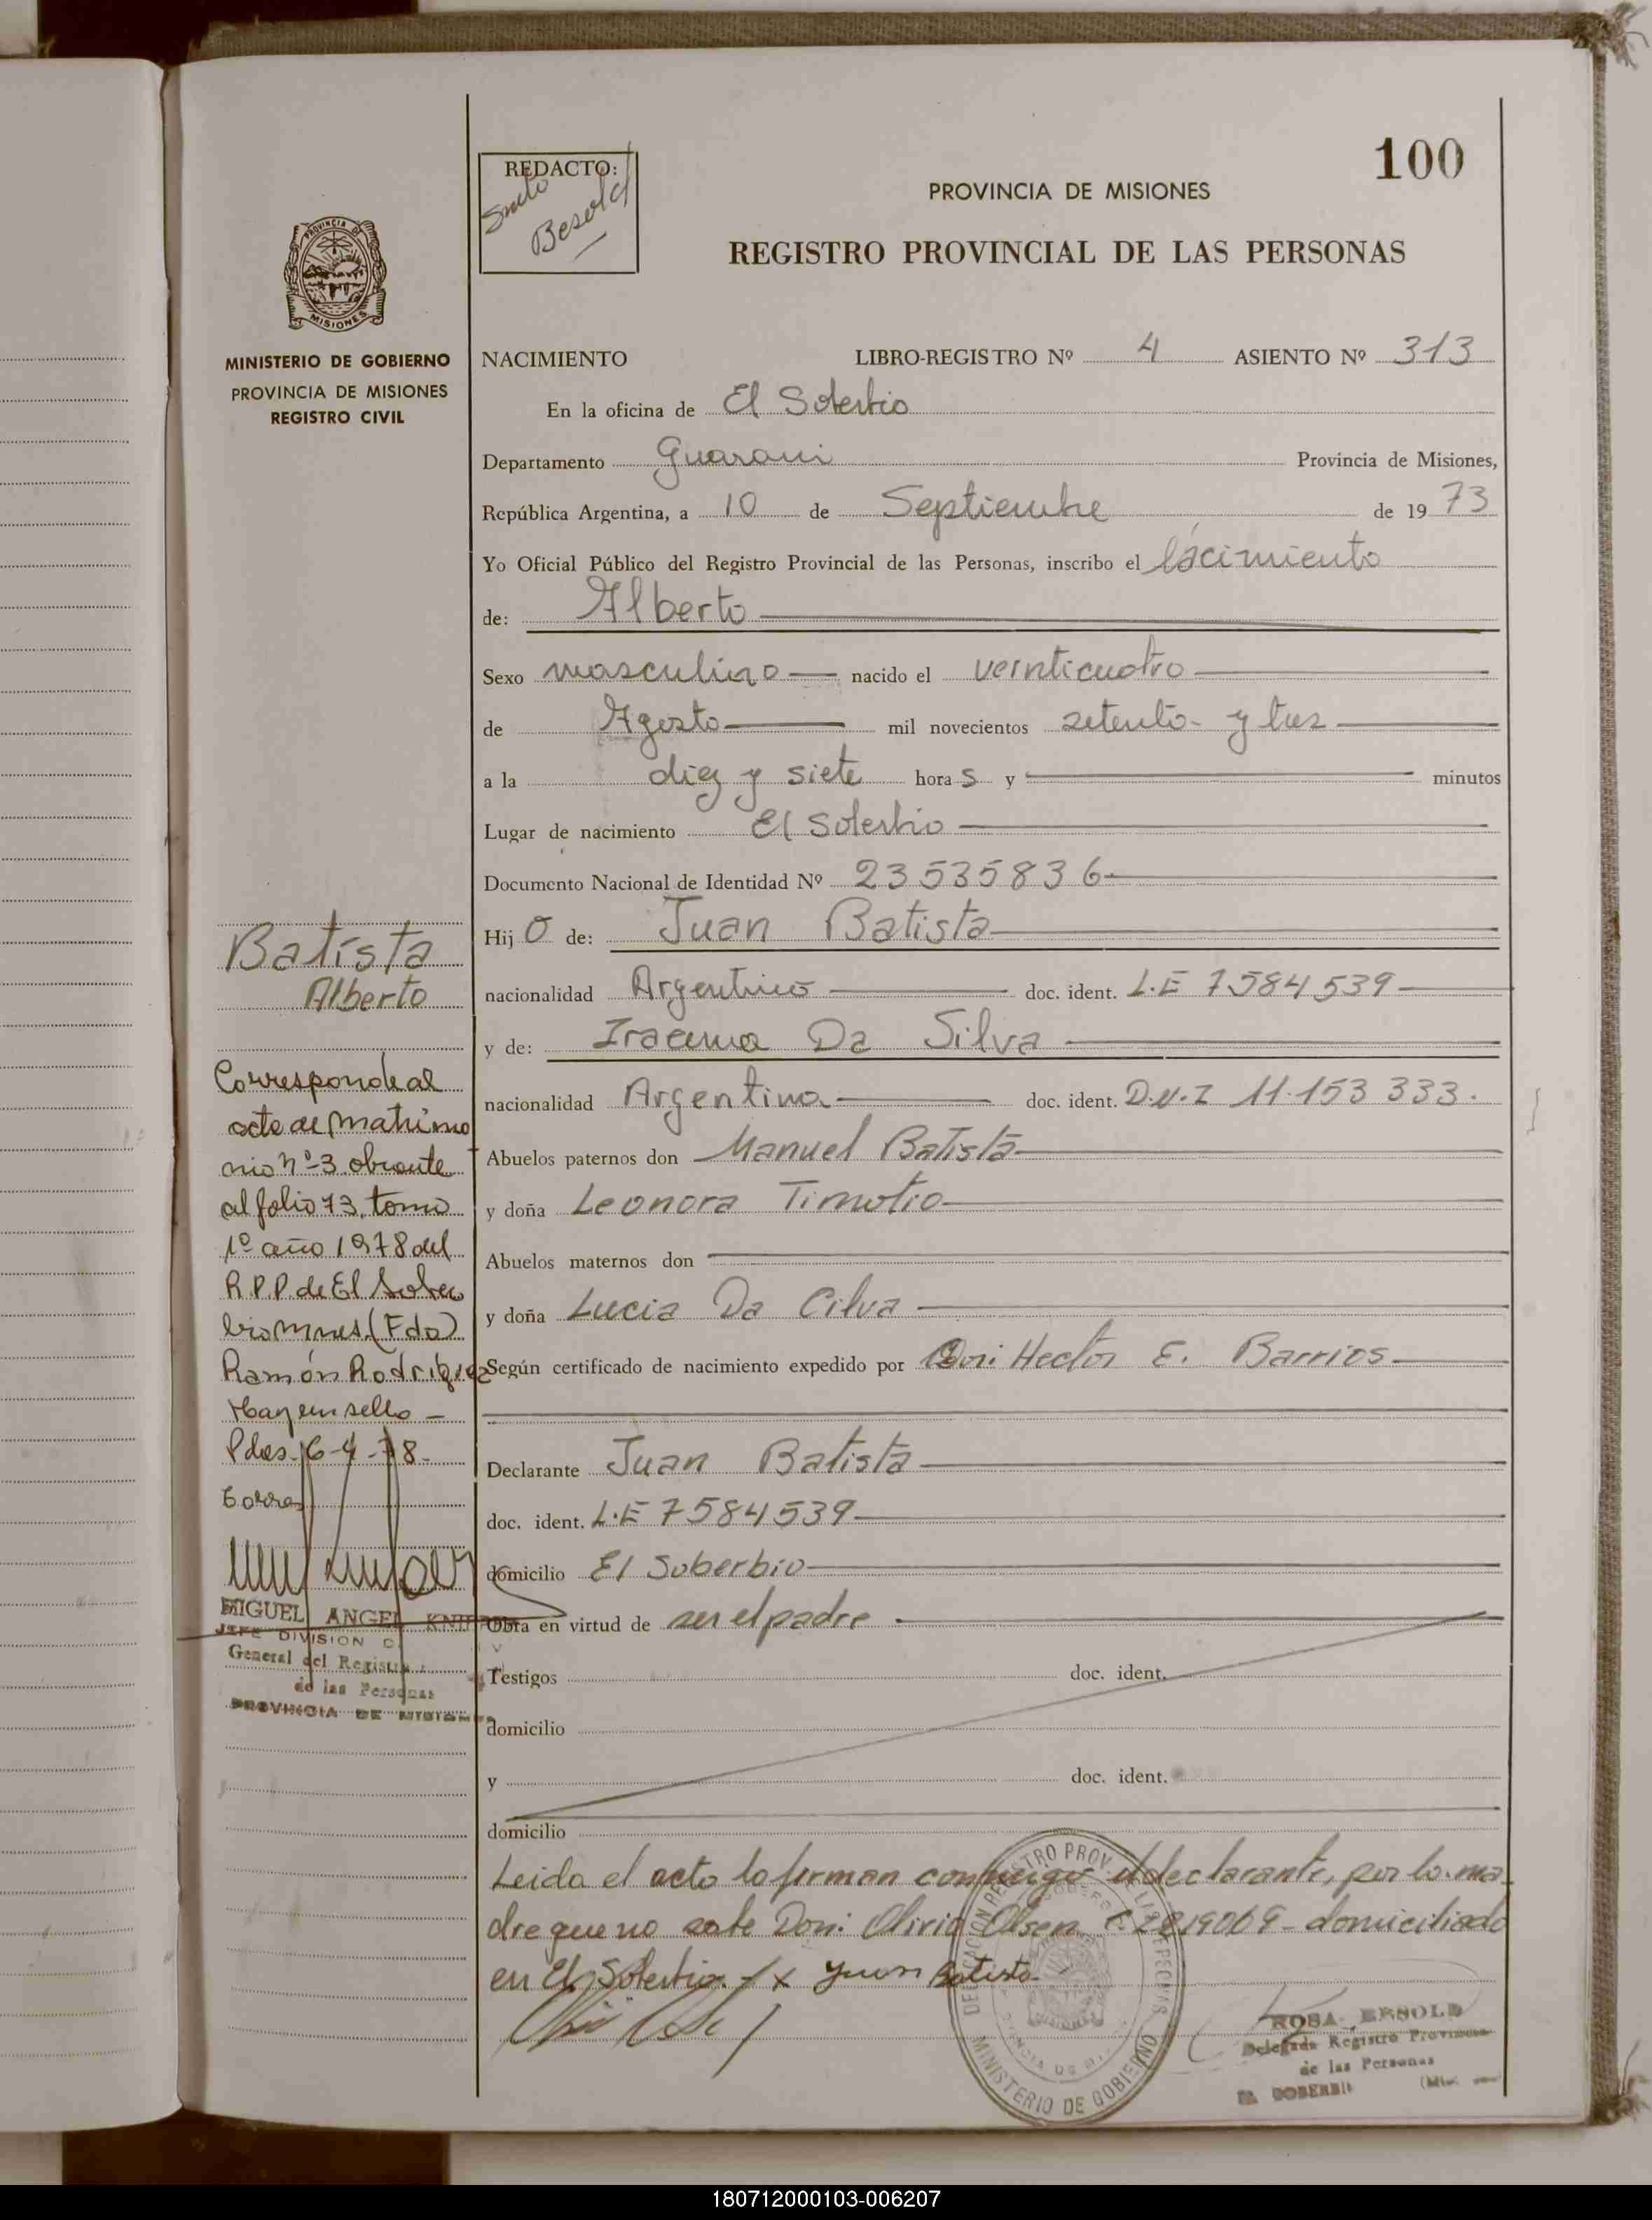 100
REDACTO:
Besold
PROVINCIA DE MISIONES
REGISTRO PROVINCIAL DE LAS PERSONAS
PROVINCIA DE
MISIONES
MINISTERIO DE GOBIERNO
PROVINCIA DE MISIONES
REGISTRO CIVIL
NACIMIENTO LIBRO-REGISTRO Nº 4 ASIENTO Nº 313
En la oficina de El Soberbio
Departamento Guarani Provincia de Misiones,
República Argentina, a 10 de Septiembre de 19 73
Yo Oficial Público del Registro Provincial de las Personas, inscribo el nacimiento
de: Alberto
Sexo masculino nacido el veinticuatro
de Agosto mil novecientos setenta y tres
a la diez y siete hora s y minutos
Lugar de nacimiento El Soberbio
Documento Nacional de Identidad Nº 23535836
Hij o de: Juan Batista
nacionalidad Argentino doc. ident. L.E 7584539
y de: Iracema Da Silva
nacionalidad Argentina doc. ident. D.N.I 11.153 333.
Abuelos paternos don Manuel Batista
y doña Leonora Timotio
Abuelos maternos don
y doña Lucia Da Cilva
Según certificado de nacimiento expedido por Don: Hector E. Barrios
Declarante Juan Batista
doc. ident. L.E 7584539
domicilio El Soberbio
Obra en virtud de ser el padre
Testigos doc. ident.
domicilio
y doc. ident.
domicilio
Leida el acta la firman conmigo el declarante, por la ma
dre que no sabe Don: Olivio Olsen C 2819069 - domiciliado
en El Soberbio. x Juan Batista
MINISTERIO DE GOBIERNO
ROSA BESOLD
Delegada Registro Provincial
de las Personas
EL SOBERBIO
Batista
Alberto
Corresponde al
acta de matrimo
nio nº 3 obrante
al folio 73, tomo
1º año 1978 del
R.P.P de El Sober
bio Mnes. (Fdo)
Ramón Rodriguez
Hay un sello -
Pdas. 6-4-78.
MIGUEL ANGEL
JEFE DIVISION
General del Registro
de las Personas
PROVINCIA DE MISIONES
180712000103-006207